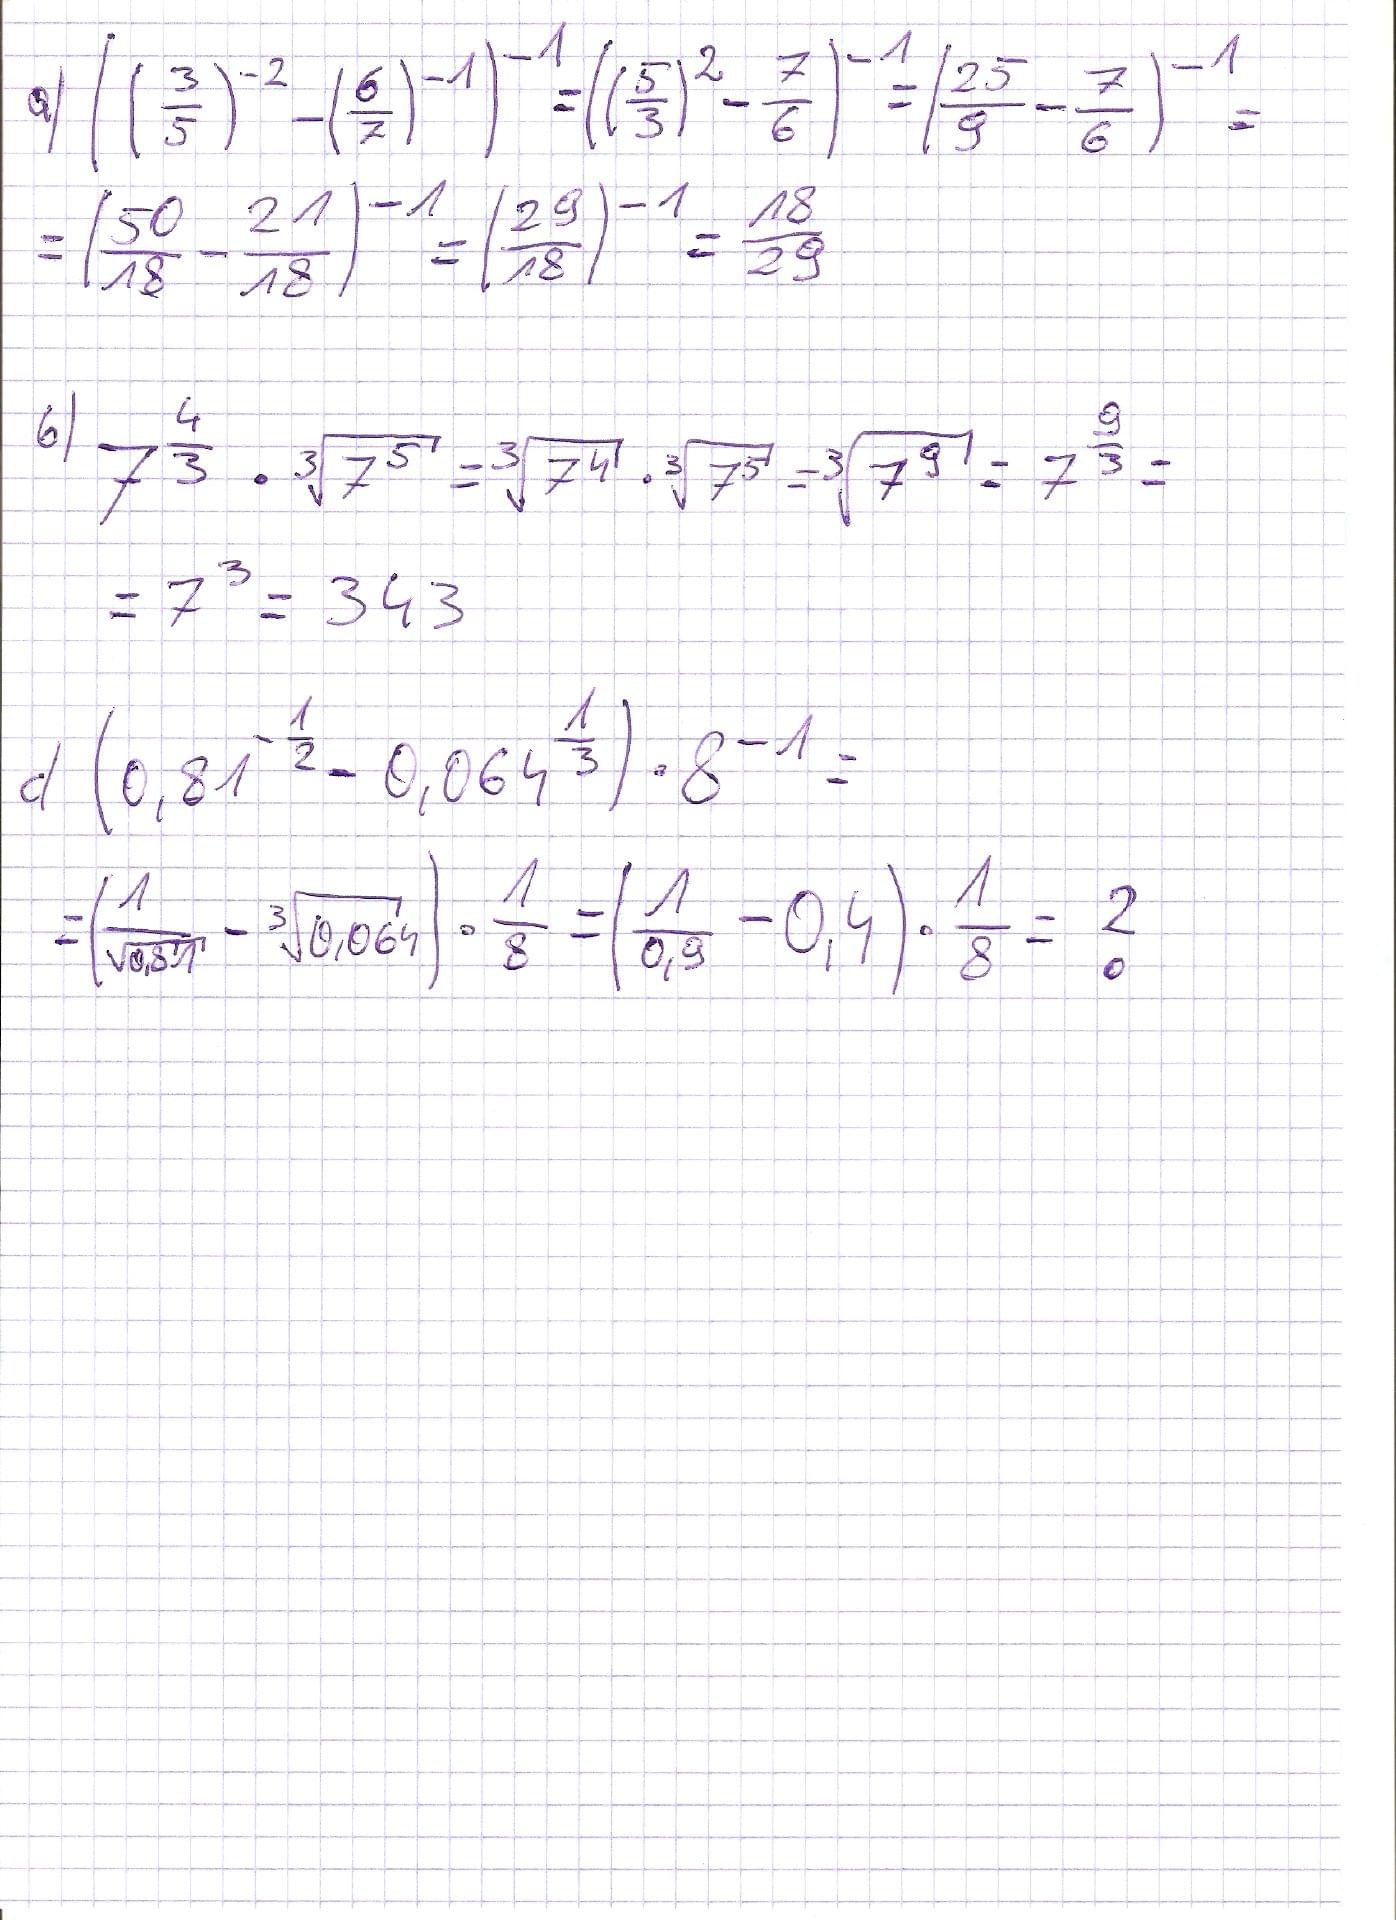 a) ((3/5)^-2 - (6/7)^-1)^-1 = ((5/3)^2 - 7/6)^-1 = (25/9 - 7/6)^-1 =
= (50/18 - 21/18)^-1 = (29/18)^-1 = 18/29
b) 7^(4/3) · ∛(7^5) = ∛(7^4) · ∛(7^5) = ∛(7^9) = 7^(9/3) =
= 7^3 = 343
d (0,81^(-1/2) - 0,064^(1/3)) · 8^-1 =
= (1/√0,81 - ∛0,064) · 1/8 = (1/0,9 - 0,4) · 1/8 = ?